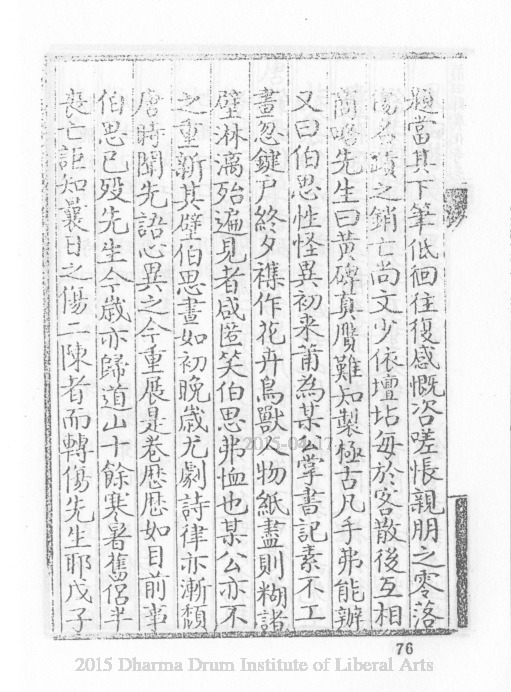 題當其下筆低徊往復感慨咨嗟悵親朋之零落
名蹟之銷亡尚文少依壇坫每於客散後互相
商略先生曰黃碑真贋難知製極古凡手弗能辦
又曰伯思性怪異初來莆為某公掌書記素不工
畫忽鍵戶終夕襍作花卉鳥獸人物紙盡則糊諸
壁淋漓殆遍見者咸匿笑伯思弗恤也某公亦不
之重新其壁伯思畫如初晚歲尤劇詩律亦漸頹
唐時聞先語心異之今重展是卷歷歷如目前事
伯思已歿先生今歲亦歸道山十餘寒暑舊侶半
喪亡詎知曩日之傷二陳者而轉傷先生耶戊子
76
2015-04-17
2015 Dharma Drum Institute of Liberal Arts